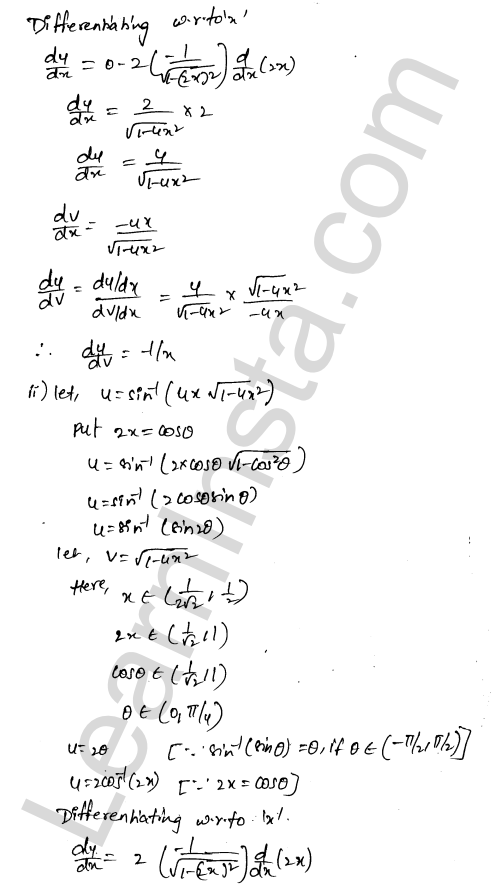 Differentiating w.r.to 'x'
dy/dx = 0-2(-1/√1-(2x)²) d/dx (2x)
dy/dx = 2/√1-4x² × 2
dy/dx = 4/√1-4x²
dv/dx = -4x/√1-4x²
dy/dv = dy/dx / dv/dx = 4/√1-4x² × √1-4x²/-4x
∴ dy/dv = -1/x
ii) let, u = sin⁻¹(4x √1-4x²)
put 2x = cosθ
u = sin⁻¹(2×cosθ √1-cos²θ)
u = sin⁻¹(2cosθsinθ)
u = sin⁻¹(sin2θ)
let, v = √1-4x²
Here, x ∈ (1/2√2, 1/2)
2x ∈ (1/√2, 1)
cosθ ∈ (1/√2, 1)
θ ∈ (0, π/4)
u = 2θ [∵ sin⁻¹(sinθ) = θ, if θ ∈ (-π/2, π/2)]
u = 2cos⁻¹(2x) [∵ 2x = cosθ]
Differentiating w.r.to 'x'.
dy/dx = 2(-1/√1-(2x)²) d/dx (2x)
LearnInsta.com